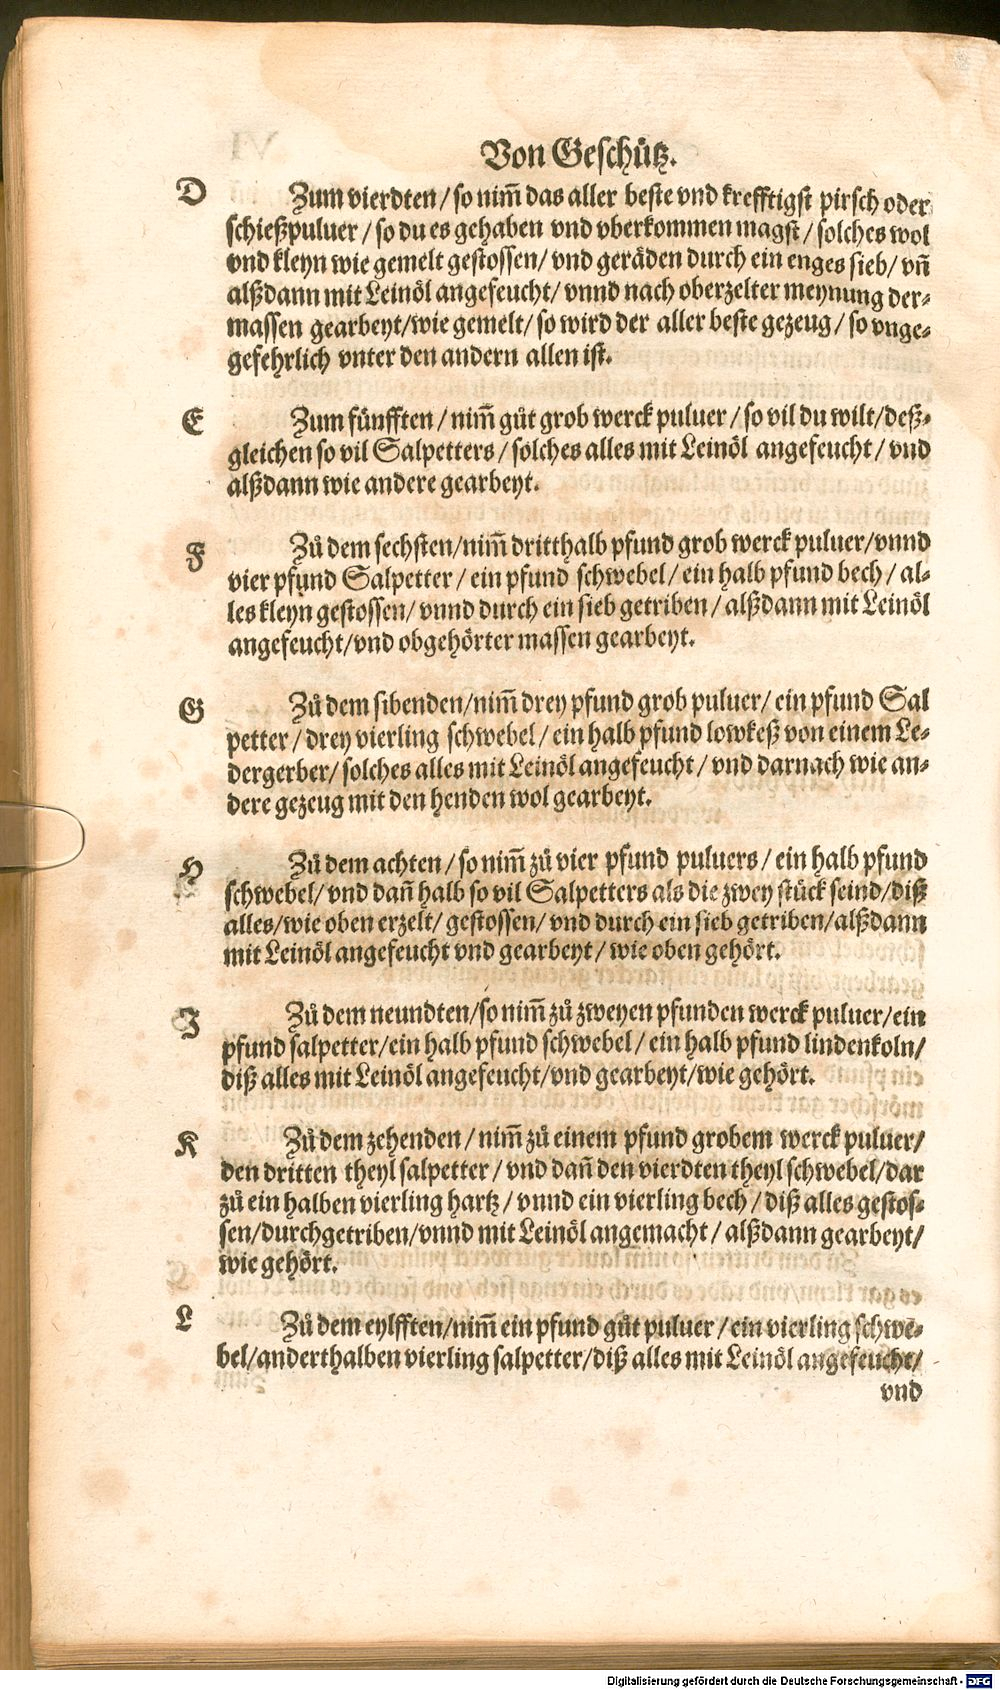 Von Geschütz.
D Zum vierdten / so nim̄ das aller beste vnd krefftigst pirsch oder
schießpuluer / so du es gehaben vnd vberkommen magst / solches wol
vnd kleyn wie gemelt gestossen / vnd geräden durch ein enges sieb / vn̄
alßdann mit Leinöl angefeucht / vnnd nach oberzelter meynung der⸗
massen gearbeyt / wie gemelt / so wird der aller beste gezeug / so vnge⸗
gefehrlich vnter den andern allen ist.
E Zum fünfften / nim̄ gůt grob werck puluer / so vil du wilt / deß⸗
gleichen so vil Salpetters / solches alles mit Leinöl angefeucht / vnd
alßdann wie andere gearbeyt.
F Zů dem sechsten / nim̄ dritthalb pfund grob werck puluer / vnnd
vier pfund Salpetter / ein pfund schwebel / ein halb pfund bech / al⸗
les kleyn gestossen / vnnd durch ein sieb getriben / alßdann mit Leinöl
angefeucht / vnd obgehörter massen gearbeyt.
G Zů dem sibenden / nim̄ drey pfund grob puluer / ein pfund Sal
petter / drey vierling schwebel / ein halb pfund lowkeß von einem Le⸗
dergerber / solches alles mit Leinöl angefeucht / vnd darnach wie an⸗
dere gezeug mit den henden wol gearbeyt.
H Zů dem achten / so nim̄ zů vier pfund puluers / ein halb pfund
schwebel / vnd dan̄ halb so vil Salpetters als die zwey stück seind / diß
alles / wie oben erzelt / gestossen / vnd durch ein sieb getriben / alßdann
mit Leinöl angefeucht vnd gearbeyt / wie oben gehört.
I Zů dem neundten / so nim̄ zů zweyen pfunden werck puluer / ein
pfund salpetter / ein halb pfund schwebel / ein halb pfund lindenkoln /
diß alles mit Leinöl angefeucht / vnd gearbeyt / wie gehört.
K Zů dem zehenden / nim̄ zů einem pfund grobem werck puluer /
den dritten theyl salpetter / vnd dan̄ den vierdten theyl schwebel / dar
zů ein halben vierling hartz / vnnd ein vierling bech / diß alles gestos⸗
sen / durchgetriben / vnnd mit Leinöl angemacht / alßdann gearbeyt /
wie gehört.
L Zů dem eylfften / nim̄ ein pfund gůt puluer / ein vierling schwe⸗
bel / anderthalben vierling salpetter / diß alles mit Leinöl angefeucht /
vnd
Digitalisierung gefördert durch die Deutsche Forschungsgemeinschaft - DFG